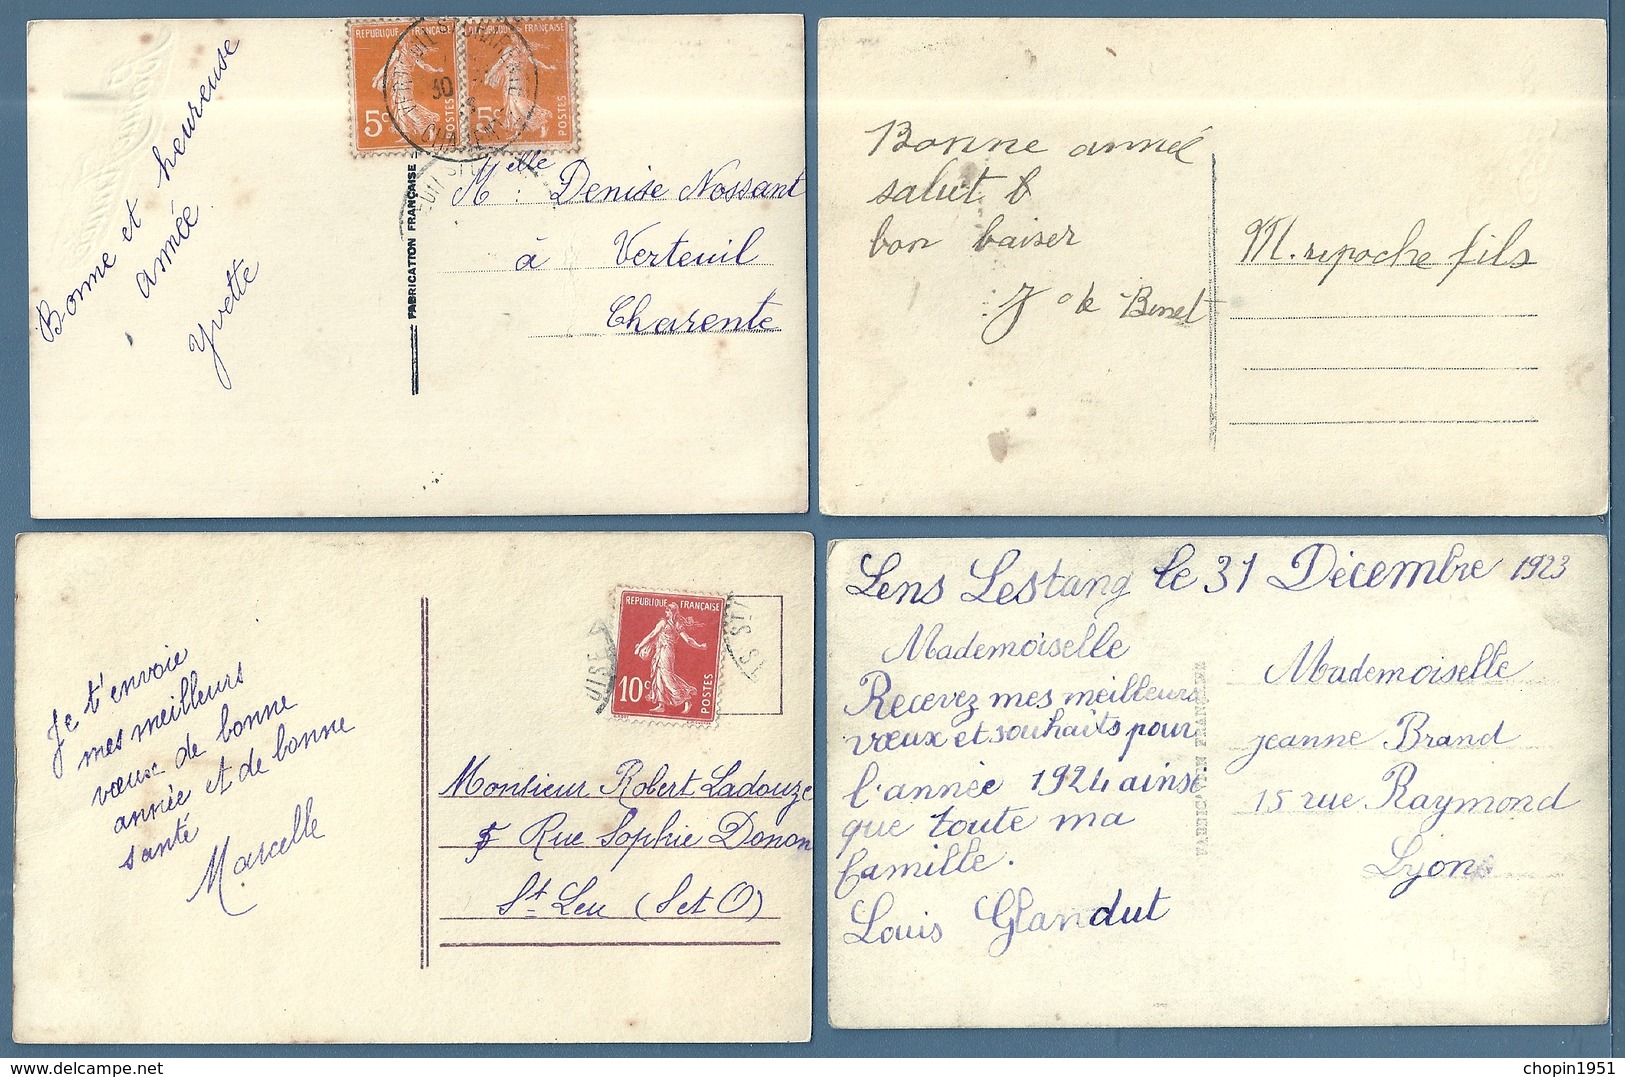 RÉPUBLIQUE FRANÇAISE
5c
POSTES
5c
POSTES
30
FABRICATION FRANÇAISE
Bonne et heureuse
année
Yvette
Melle : Denise Nossant
à Verteuil
Charente
Bonne année
salut &
bon baiser
Binet
M. repoche fils
RÉPUBLIQUE FRANÇAISE
10c
POSTES
Je t'envoie
mes meilleurs
vœux de bonne
année et de bonne
santé
Marcelle
Monsieur Robert Ladouze
5 Rue Sophie Donon
St Leu (S et O)
Lens Lestang le 31 Décembre 1923
Mademoiselle
Recevez mes meilleurs
vœux et souhaits pour
l'année 1924 ainsi
que toute ma
famille.
Louis Glandut
FABRICATION FRANÇAISE
Mademoiselle
jeanne Brand
15 rue Raymond
Lyon
chopin1951